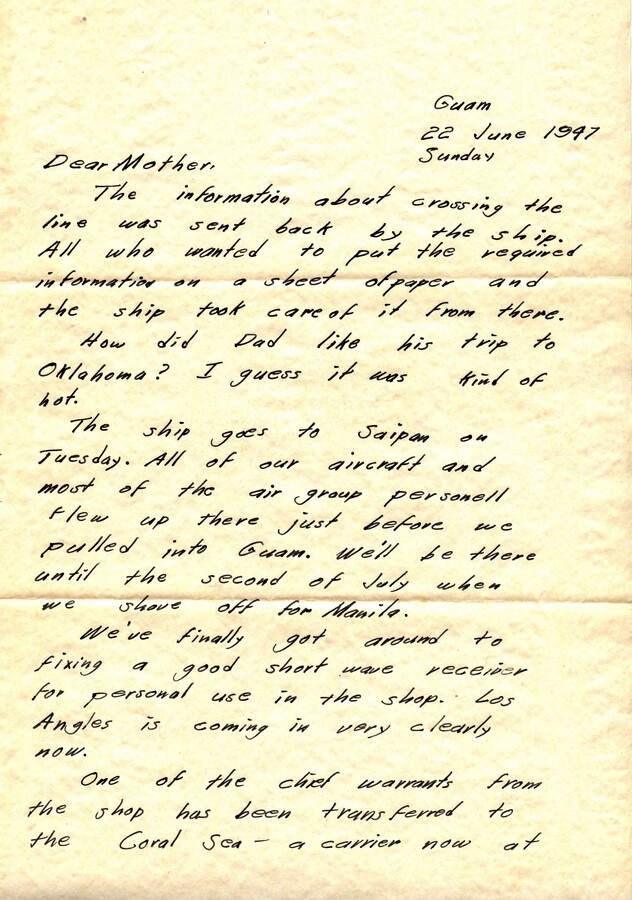 Guam
22 June 1947
Sunday
Dear Mother,
The information about crossing the
line was sent back by the ship.
All who wanted to put the required
information on a sheet of paper and
the ship took care of it from there.
How did Dad like his trip to
Oklahoma? I guess it was kind of
hot.
The ship goes to Saipan on
Tuesday. All of our aircraft and
most of the air group personell
flew up there just before we
pulled into Guam. We'll be there
until the second of July when
we shove off for Manila.
We've finally got around to
fixing a good short wave receiver
for personal use in the shop. Los
Angles is coming in very clearly
now.
One of the chief warrants from
the shop has been transferred to
the Coral Sea — a carrier now at